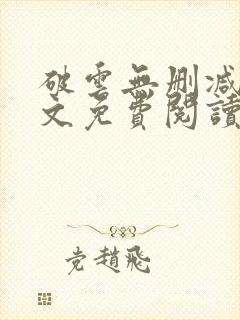 破雲無刪減
文免費閱讀
党趙飛